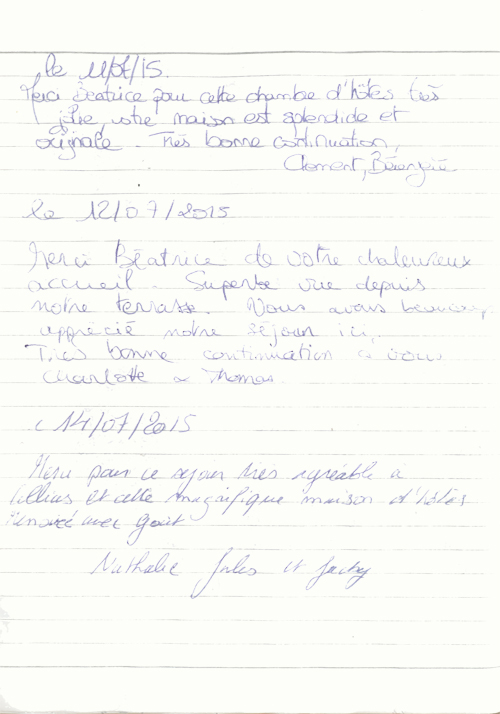 le 11/07/15.
Merci Béatrice pour cette chambe d'hôtes très
jolie, votre maison est splendide et
originale. Très bonne continuation,
Clement, Bérengère
le 12/07/2015
Merci Béatrice de votre chaleureux
accueil. Superbe vue depuis
notre terrasse. Nous avons beaucoup
apprécié notre séjour ici,
Très bonne continuation à vous
Charlotte & Thomas
14/07/2015
Merci pour ce séjour très agréable à
et cette magnifique maison d'hôtes
rénovée avec goût
Nathalie Jules et